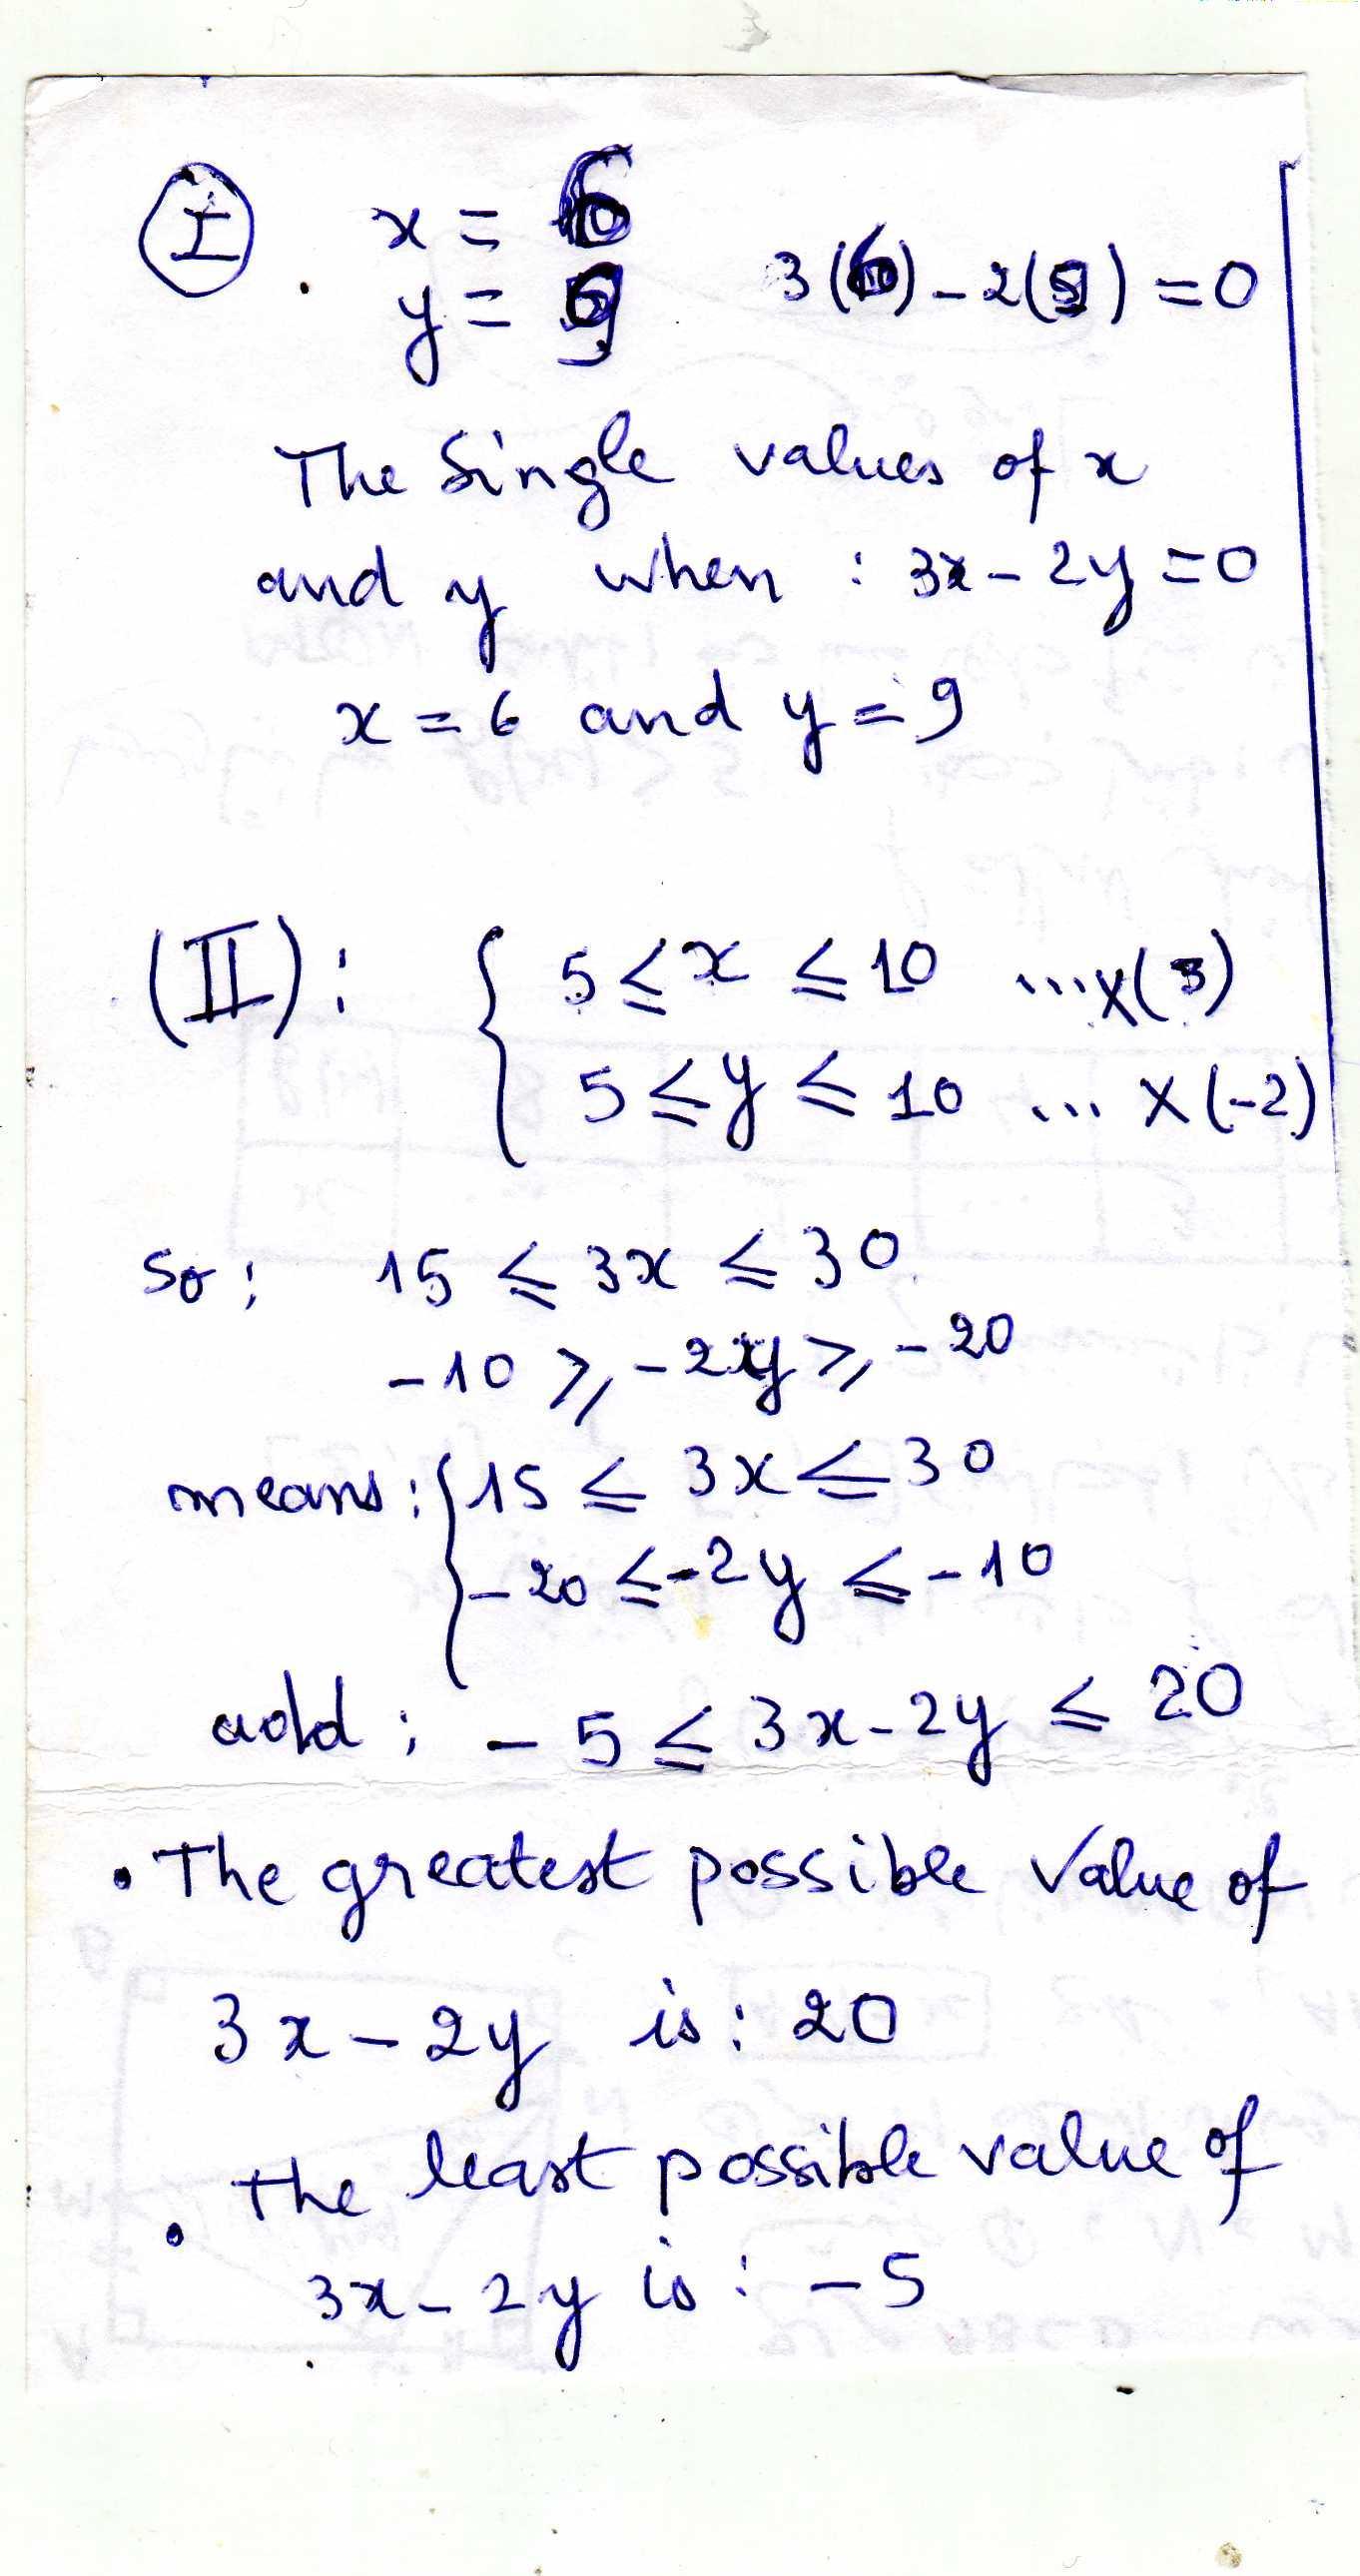 I . x = 6
y = 9 3(6) - 2(9) = 0
The Single values of x
and y when : 3x - 2y = 0
x = 6 and y = 9
(II) : { 5 ≤ x ≤ 10 ... x(3)
5 ≤ y ≤ 10 ... x(-2)
So : 15 ≤ 3x ≤ 30
-10 ≥ -2y ≥ -20
means : { 15 ≤ 3x ≤ 30
-20 ≤ -2y ≤ -10
add : -5 ≤ 3x - 2y ≤ 20
• The greatest possible value of
3x - 2y is : 20
• the least possible value of
3x - 2y is : -5